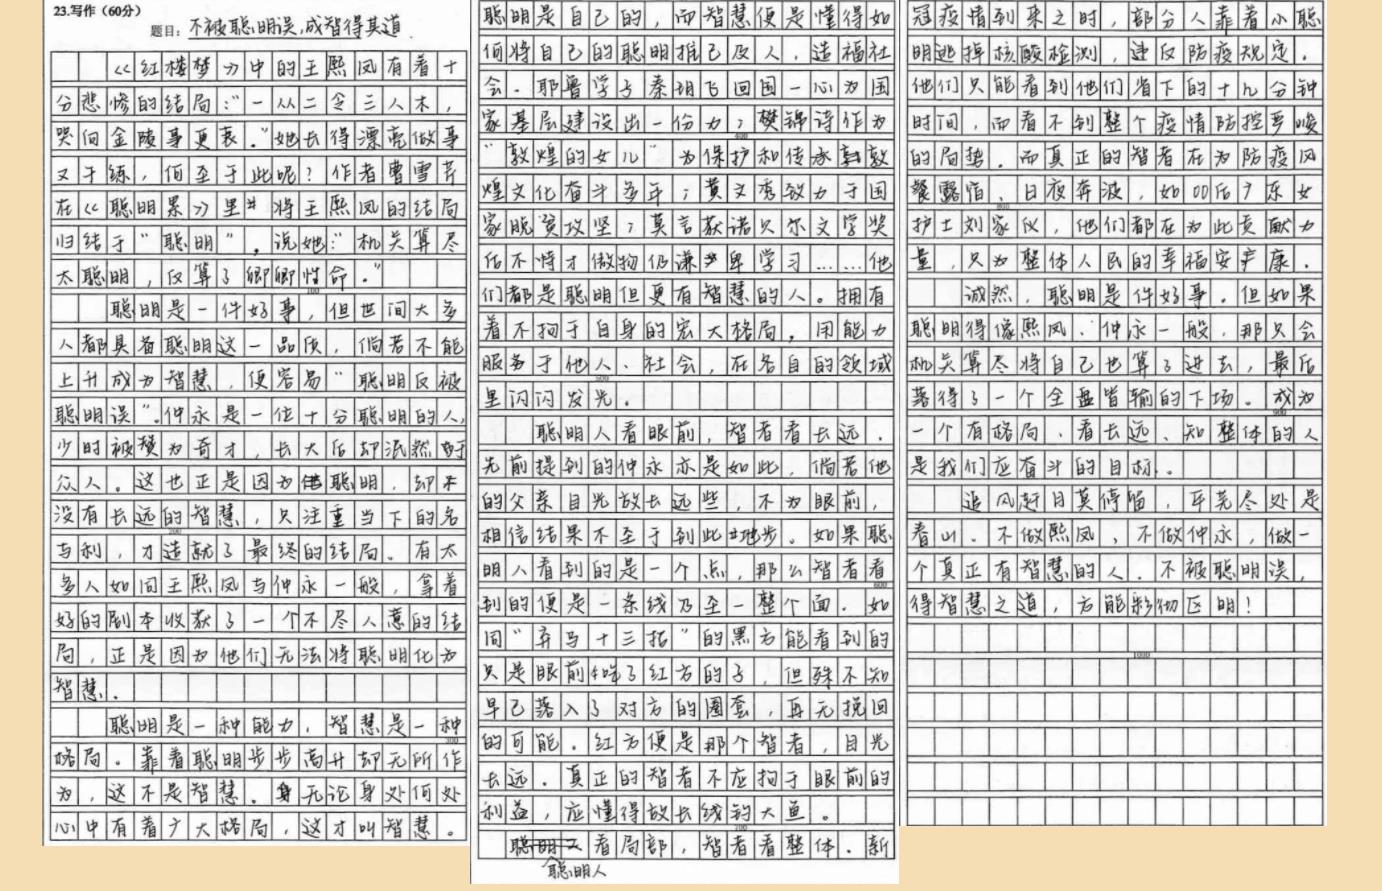 23.写作(60分)
题目: 不被聪明误,成智得其道.
《红楼梦》中的王熙凤有着十
分悲惨的结局:"一从二令三人木,
哭向金陵事更哀。"她长得漂亮做事
又干练,何至于此呢?作者曹雪芹
在《聪明累》里将王熙凤的结局
归结于"聪明",说她:"机关算尽
太聪明,反算了卿卿性命。"
100
聪明是一件好事,但世间大多
人都具备聪明这一品质,倘若不能
上升成为智慧,便容易"聪明反被
聪明误"。仲永是一位十分聪明的人,
少时被赞为奇才,长大后却泯然于
众人。这也正是因为聪明,却
没有长远的智慧,只注重当下的名
200
与利,才造就了最终的结局。有太
多人如同王熙凤与仲永一般,拿着
好的剧本收获了一个不尽人意的结
局,正是因为他们无法将聪明化为
智慧.
聪明是一种能力,智慧是一种
300
格局.靠着聪明步步高升却无所作
为,这不是智慧.无论身处何处
心中有着广大格局,这才叫智慧。
聪明是自己的,而智慧便是懂得如
何将自己的聪明推己及人,造福社
会.耶鲁学子秦玥飞回国一心为国
家基层建设出一份力;樊锦诗作为
400
"敦煌的女儿"为保护和传承敦
煌文化奋斗多年;黄文秀致力于国
家脱贫攻坚;莫言获诺贝尔文学奖
后不恃才傲物仍谦卑学习……他
们都是聪明但更有智慧的人。拥有
着不拘于自身的宏大格局,用能力
服务于他人、社会,在各自的领域
500
里闪闪发光.
聪明人看眼前,智者看长远.
先前提到的仲永亦是如此,倘若他
的父亲目光放长远些,不为眼前,
相信结果不至于到此地步.如果聪
明人看到的是一个点,那么智者看
600
到的便是一条线乃至一整个面.如
同"弃马十三招"的黑方能看到的
只是眼前吃了红方的子,但殊不知
早已落入了对方的圈套,再无挽回
的可能.红方便是那个智者,目光
长远.真正的智者不应拘于眼前的
利益,应懂得放长线钓大鱼。
700
聪明人看局部,智者看整体.新
冠疫情到来之时,部分人靠着小聪
明逃掉核酸检测,违反防疫规定.
他们只能看到他们省下的十几分钟
时间,而看不到整个疫情防控严峻
的局势.而真正的智者在为防疫风
餐露宿、日夜奔波,如00后广东女
800
护士刘家仪,他们都在为此贡献力
量,只为整体人民的幸福安康.
诚然,聪明是件好事.但如果
聪明得像熙凤、仲永一般,那只会
机关算尽将自己也算了进去,最后
落得了一个全盘皆输的下场.成为
900
一个有格局、看长远、知整体的人
是我们应奋斗的目标.
追风赶月莫停留,平芜尽处是
春山.不做熙凤,不做仲永,做一
个真正有智慧的人.不被聪明误,
得智慧之道,方能彰彻区明!
1000